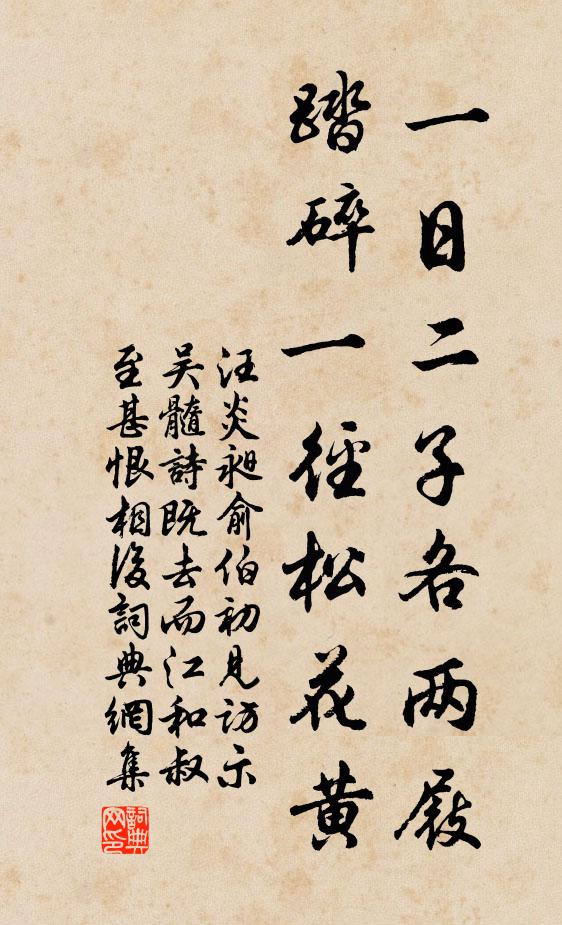 一日二子各两屐
踏碎一径松花黄
汪炎昶俞伯初见访示
吴髓詩既去而江和叔
至甚恨相後詞典網集
詞典网印